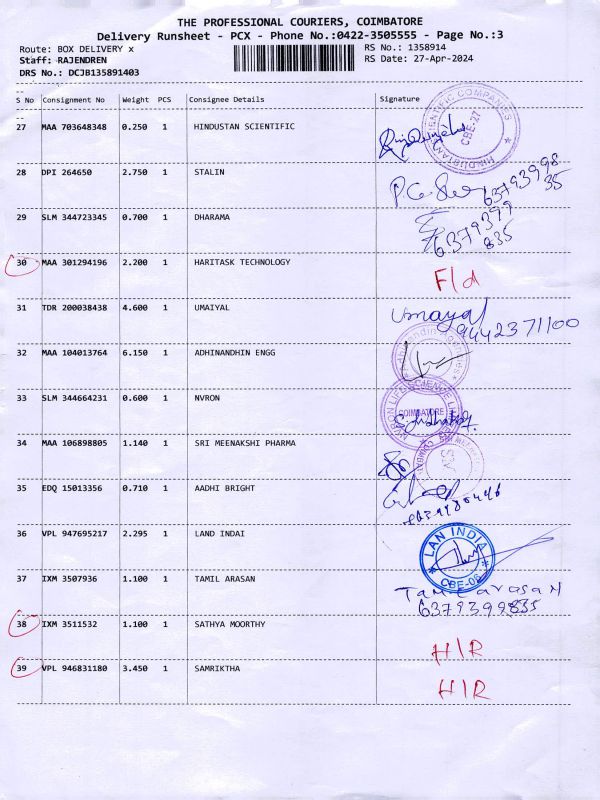 THE PROFESSIONAL COURIERS, COIMBATORE
Delivery Runsheet - PCX - Phone No.:0422-3505555 - Page No.:3
Route: BOX DELIVERY x RS No.: 1358914
Staff: RAJENDREN RS Date: 27-Apr-2024
DRS No.: DCJB135891403
S No Consignment No Weight PCS Consignee Details Signature
27 MAA 703648348 0.250 1 HINDUSTAN SCIENTIFIC
HINDUSTAN SCIENTIFIC COMPANIES
CBE-27
28 DPI 264650 2.750 1 STALIN
6379399835
29 SLM 344723345 0.700 1 DHARAMA
6379399835
30 MAA 301294196 2.200 1 HARITASK TECHNOLOGY F/d
31 TDR 200038438 4.600 1 UMAIYAL Umayal
9442371100
32 MAA 104013764 6.150 1 ADHINANDHIN ENGG
33 SLM 344664231 0.600 1 NVRON
COIMBATORE
34 MAA 106898805 1.140 1 SRI MEENAKSHI PHARMA
35 EDQ 15013356 0.710 1 AADHI BRIGHT
36 VPL 947695217 2.295 1 LAND INDAI
LAN INDIA
37 IXM 3507936 1.100 1 TAMIL ARASAN
6379399835
38 IXM 3511532 1.100 1 SATHYA MOORTHY H/R
39 VPL 946831180 3.450 1 SAMRIKTHA H/R